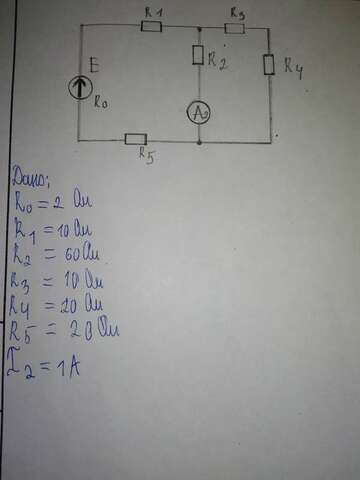 R1
R3
E
R2
R4
R0
A2
R5
Дано;
R0 = 2 Ом
R1 = 10 Ом
R2 = 60 Ом
R3 = 10 Ом
R4 = 20 Ом
R5 = 20 Ом
I2 = 1 A